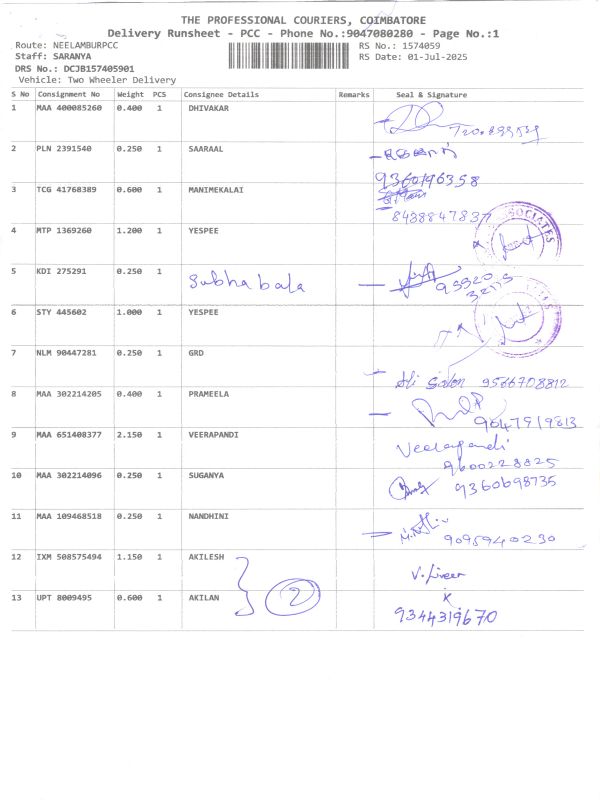 THE PROFESSIONAL COURIERS, COIMBATORE
Delivery Runsheet - PCC - Phone No.:9047080280 - Page No.:1
Route: NEELAMBURPCC RS No.: 1574059
Staff: SARANYA RS Date: 01-Jul-2025
DRS No.: DCJB157405901
Vehicle: Two Wheeler Delivery
S No Consignment No Weight PCS Consignee Details Remarks Seal & Signature
1 MAA 400085260 0.400 1 DHIVAKAR
2 PLN 2391540 0.250 1 SAARAAL
9360196358
3 TCG 41768389 0.600 1 MANIMEKALAI
8438847837
4 MTP 1369260 1.200 1 YESPEE
5 KDI 275291 0.250 1 Subha bala
6 STY 445602 1.000 1 YESPEE
7 NLM 90447281 0.250 1 GRD
Salon 9566708812
8 MAA 302214205 0.400 1 PRAMEELA
9047919813
9 MAA 651408377 2.150 1 VEERAPANDI Veerapandi
9600228825
10 MAA 302214096 0.250 1 SUGANYA 9360698735
11 MAA 109468518 0.250 1 NANDHINI
9095940230
12 IXM 508575494 1.150 1 AKILESH
2
13 UPT 8009495 0.600 1 AKILAN
9344319670